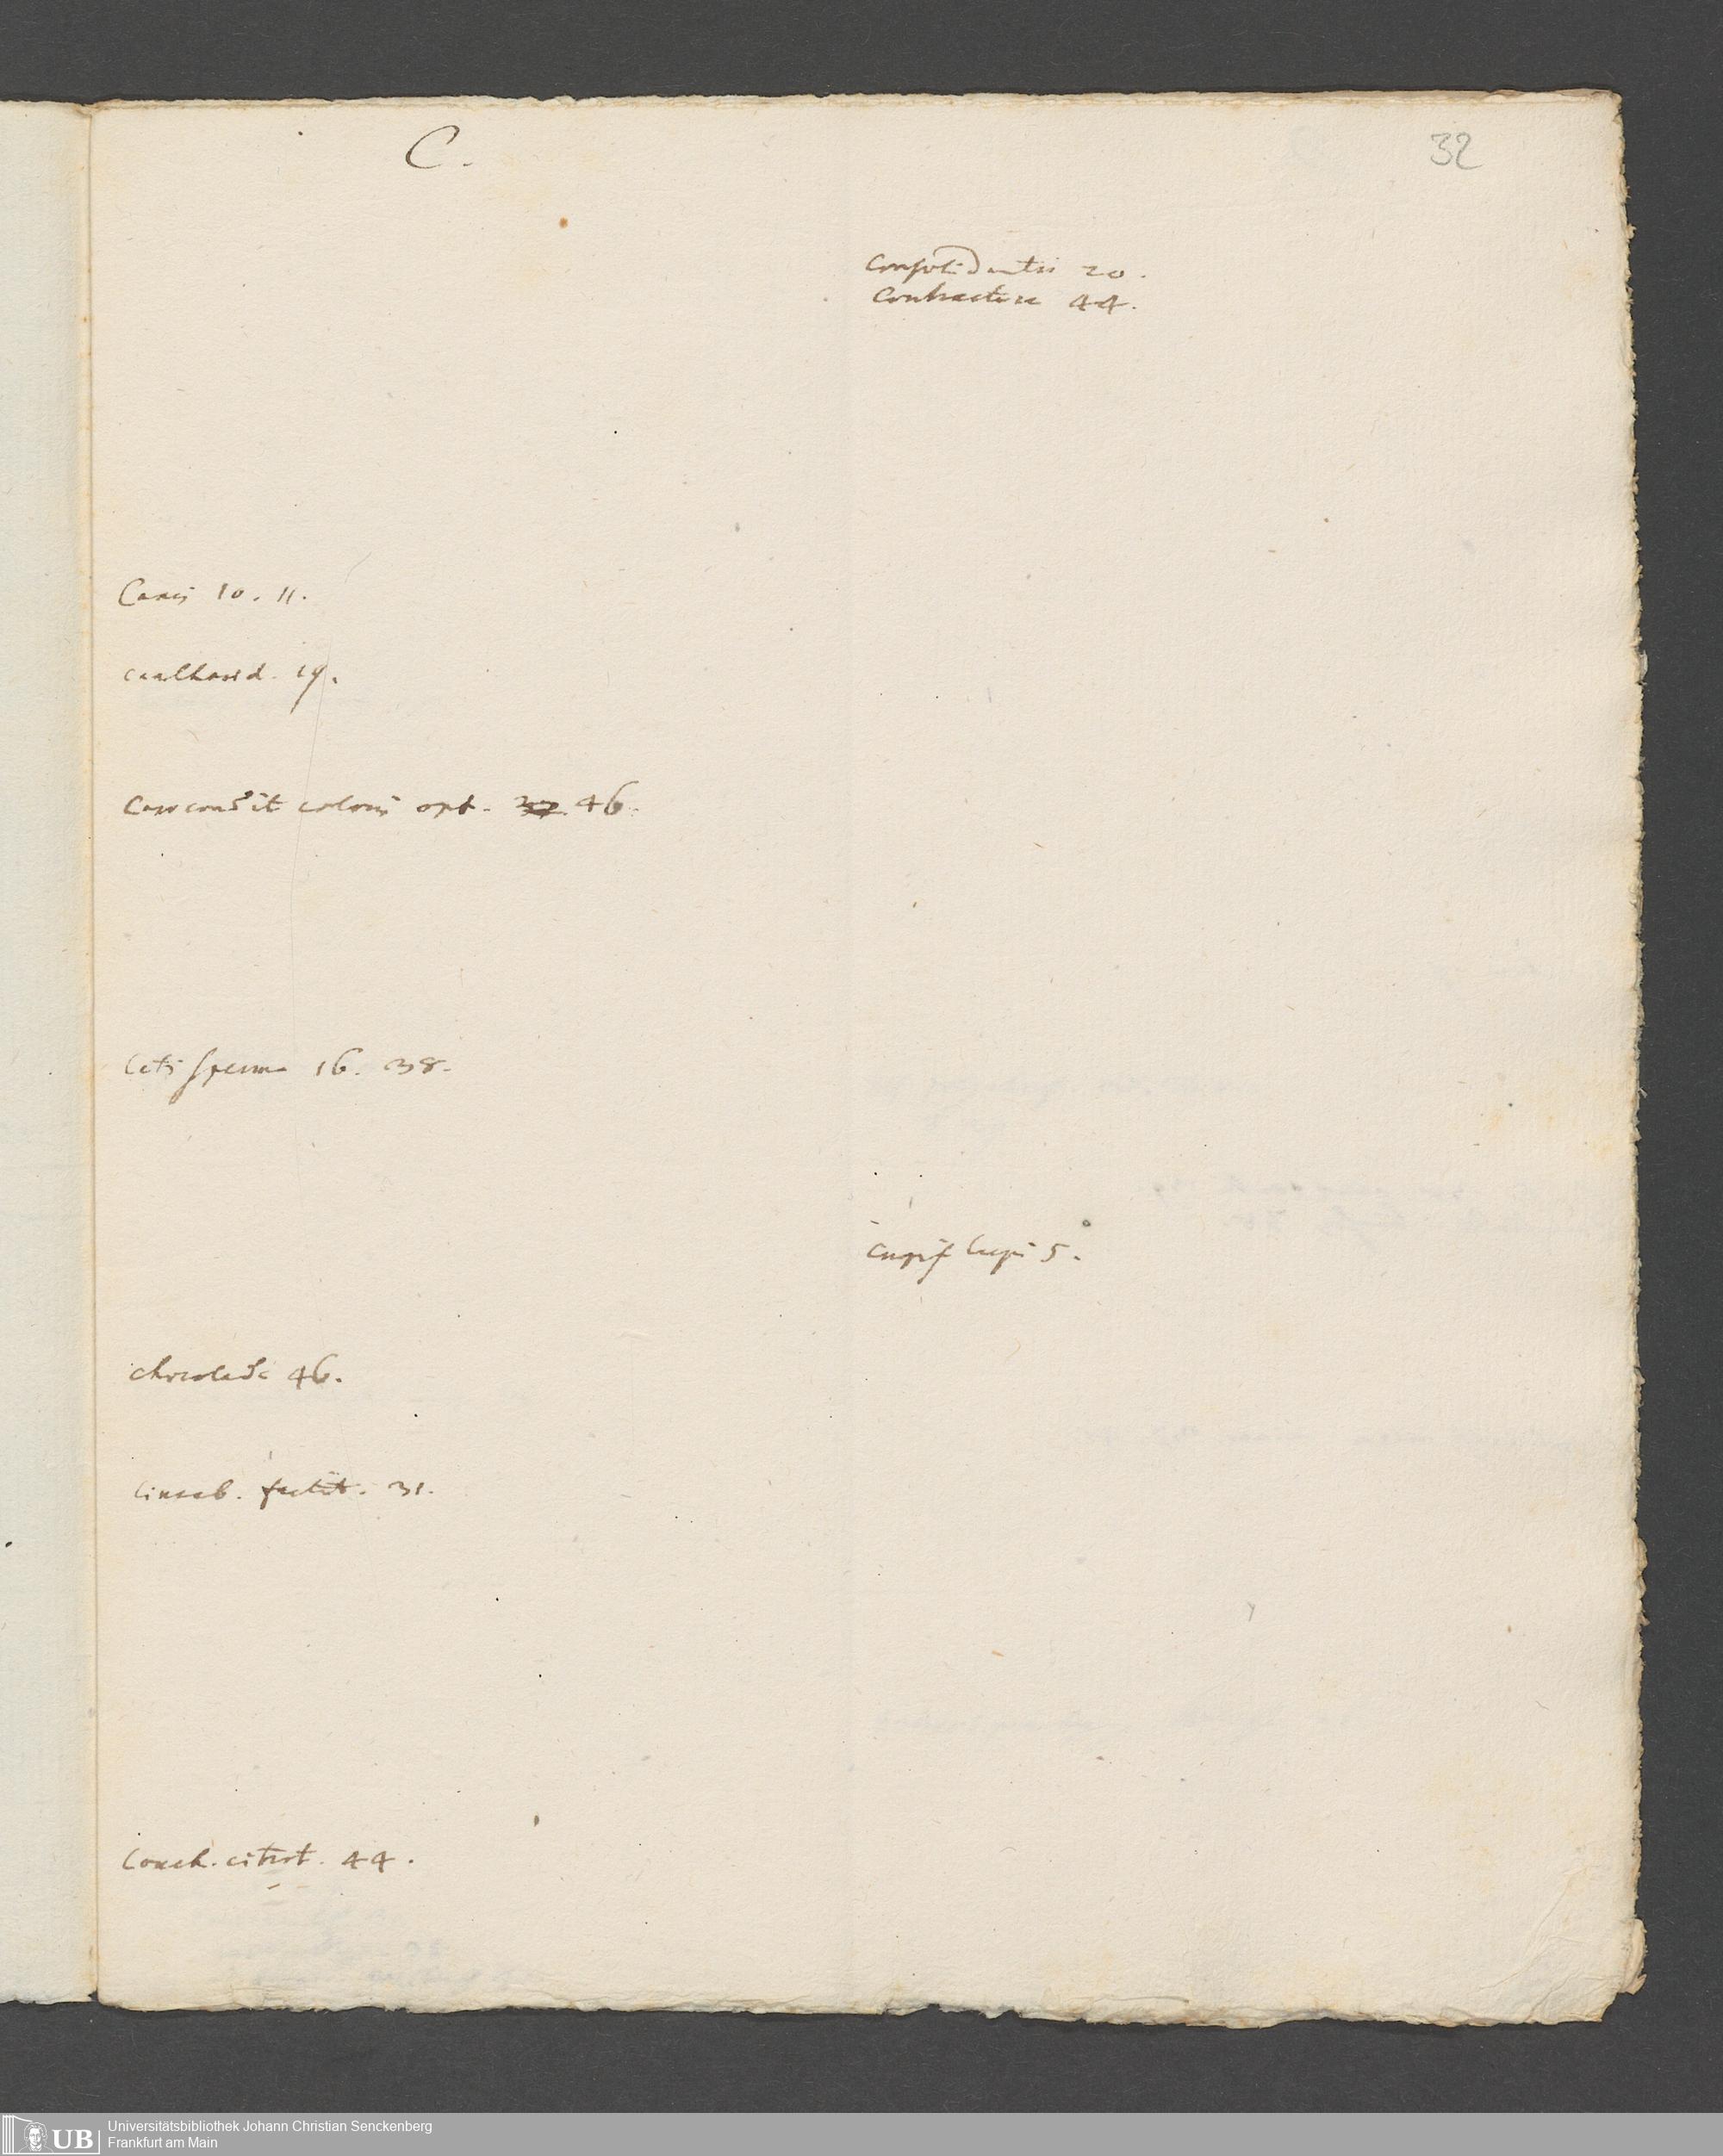 C.
32
Consolidantia 20.
Contractura 44.
Canis 10. 11.
cantharid. 19.
coloris opt. 46.
Ceti sperma 16. 38.
lupi 5.
chocolade 46.
Cinnab. factit. 31.
Conch. citrat. 44.
UB
Universitätsbibliothek Johann Christian Senckenberg
Frankfurt am Main